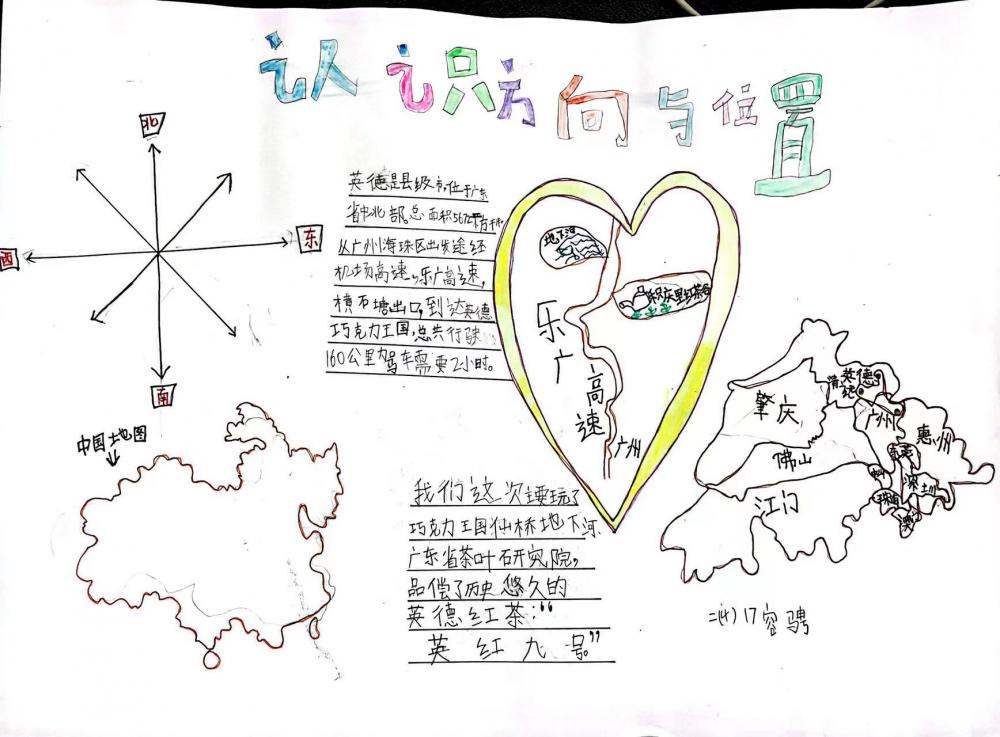 认识方向与位置
北
西
东
南
英德是县级市,位于广东
省中北部。总面积5672平方千米
从广州海珠区出发途经
机场高速,乐广高速,
横石塘出口,到达英德
巧克力王国,总共行驶
160公里,驾车需要2小时。
地下河
积庆里红茶谷
乐广高速
广州
中国地图
我们这次主要玩了
巧克力王国仙桥地下河
广东省茶叶研究院,
品偿了历史悠久的
英德红茶:“
英红九号”
肇庆
清远
英德
广州
惠州
佛山
东莞
深圳
江门
珠海
澳门
二(4) 17 容骋